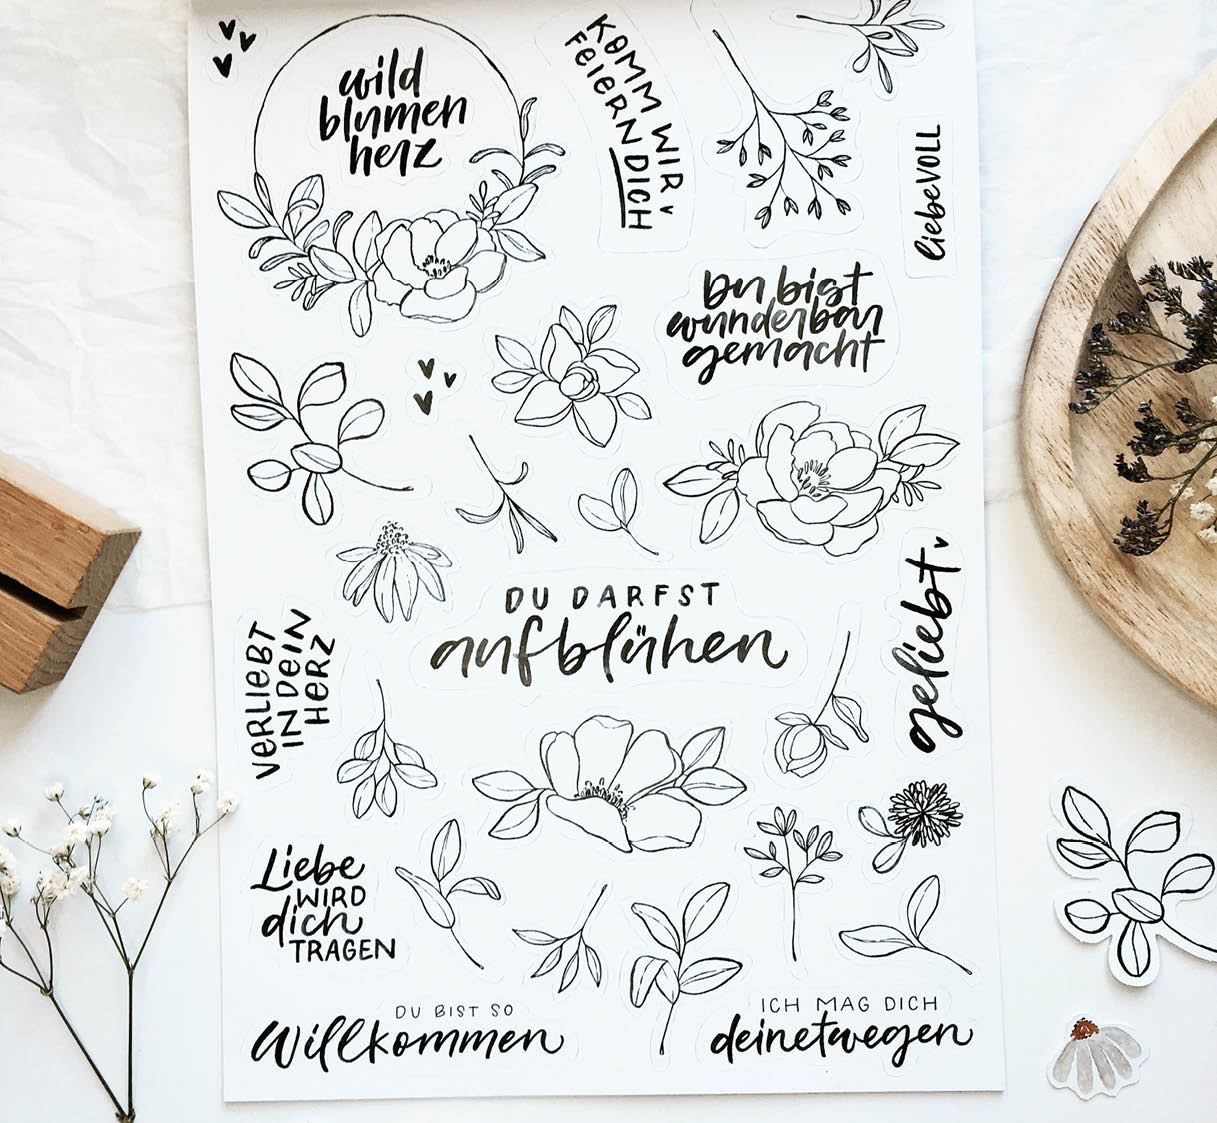 wild
blumen
herz
KOMM WIR
FEIERN DICH
liebeVOLL
Du bist
wunderbar
gemacht
DU DARFST
aufblühen
geliebt
VERLIEBT
IN DEIN
HERZ
Liebe
WIRD
dich
TRAGEN
DU BIST SO
Willkommen
ICH MAG DICH
deinetwegen